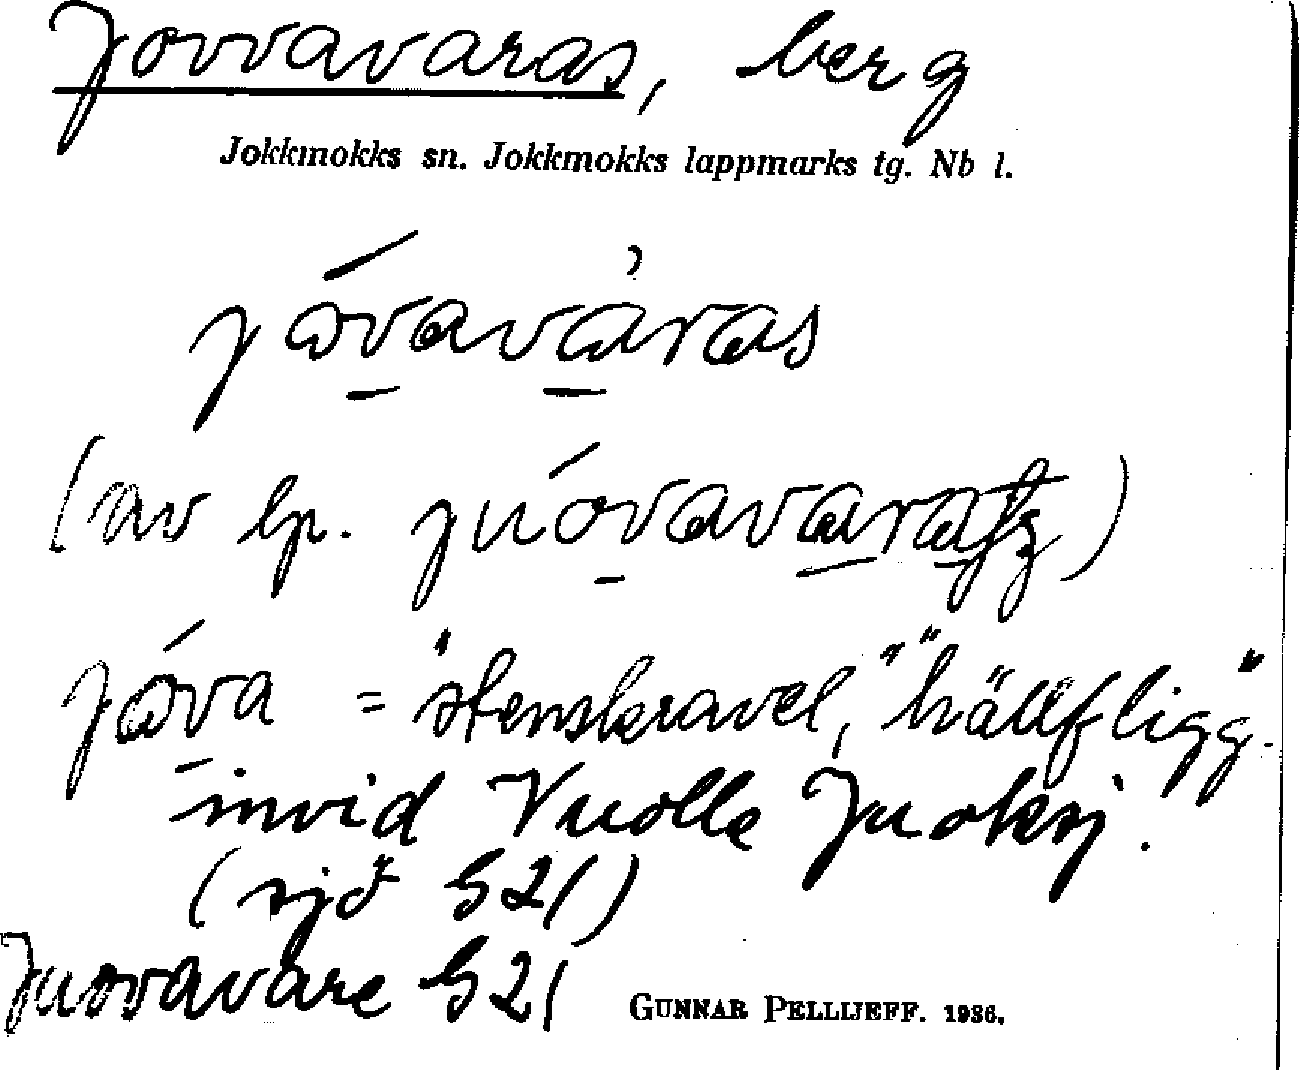 Jovvavaras, berg
Jokkmokks sn. Jokkmokks lappmarks tg. Nb l.
jóvavàras
(av lp. juóvavaratʒ)
jóva = "stenskravel," "hällfligg".
invid Vuolle Juoksj.
(sjö G21)
Juovavare G21
GUNNAR PELLIJEFF. 1936.